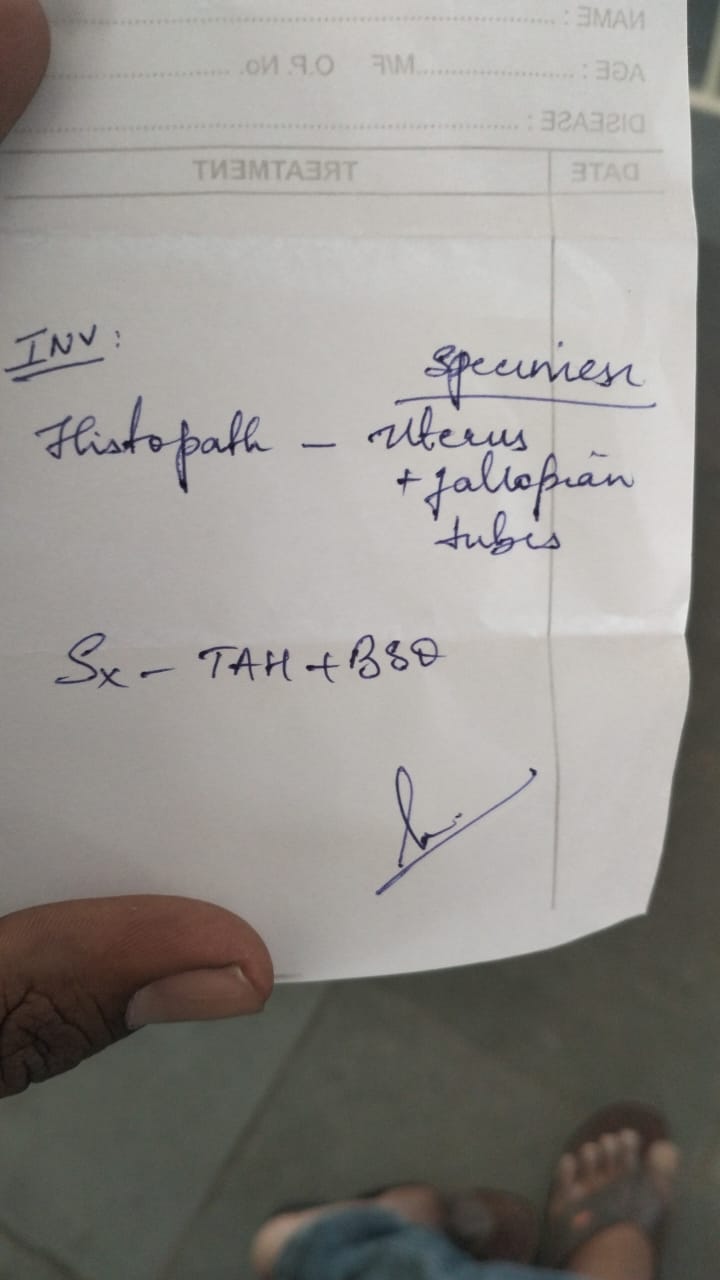 NAME :
AGE : M/F O.P. No.
DISEASE :
DATE TREATMENT
INV :
Specimen
Histopath - Uterus
+ fallopian
tubes
Sx - TAH + BSO